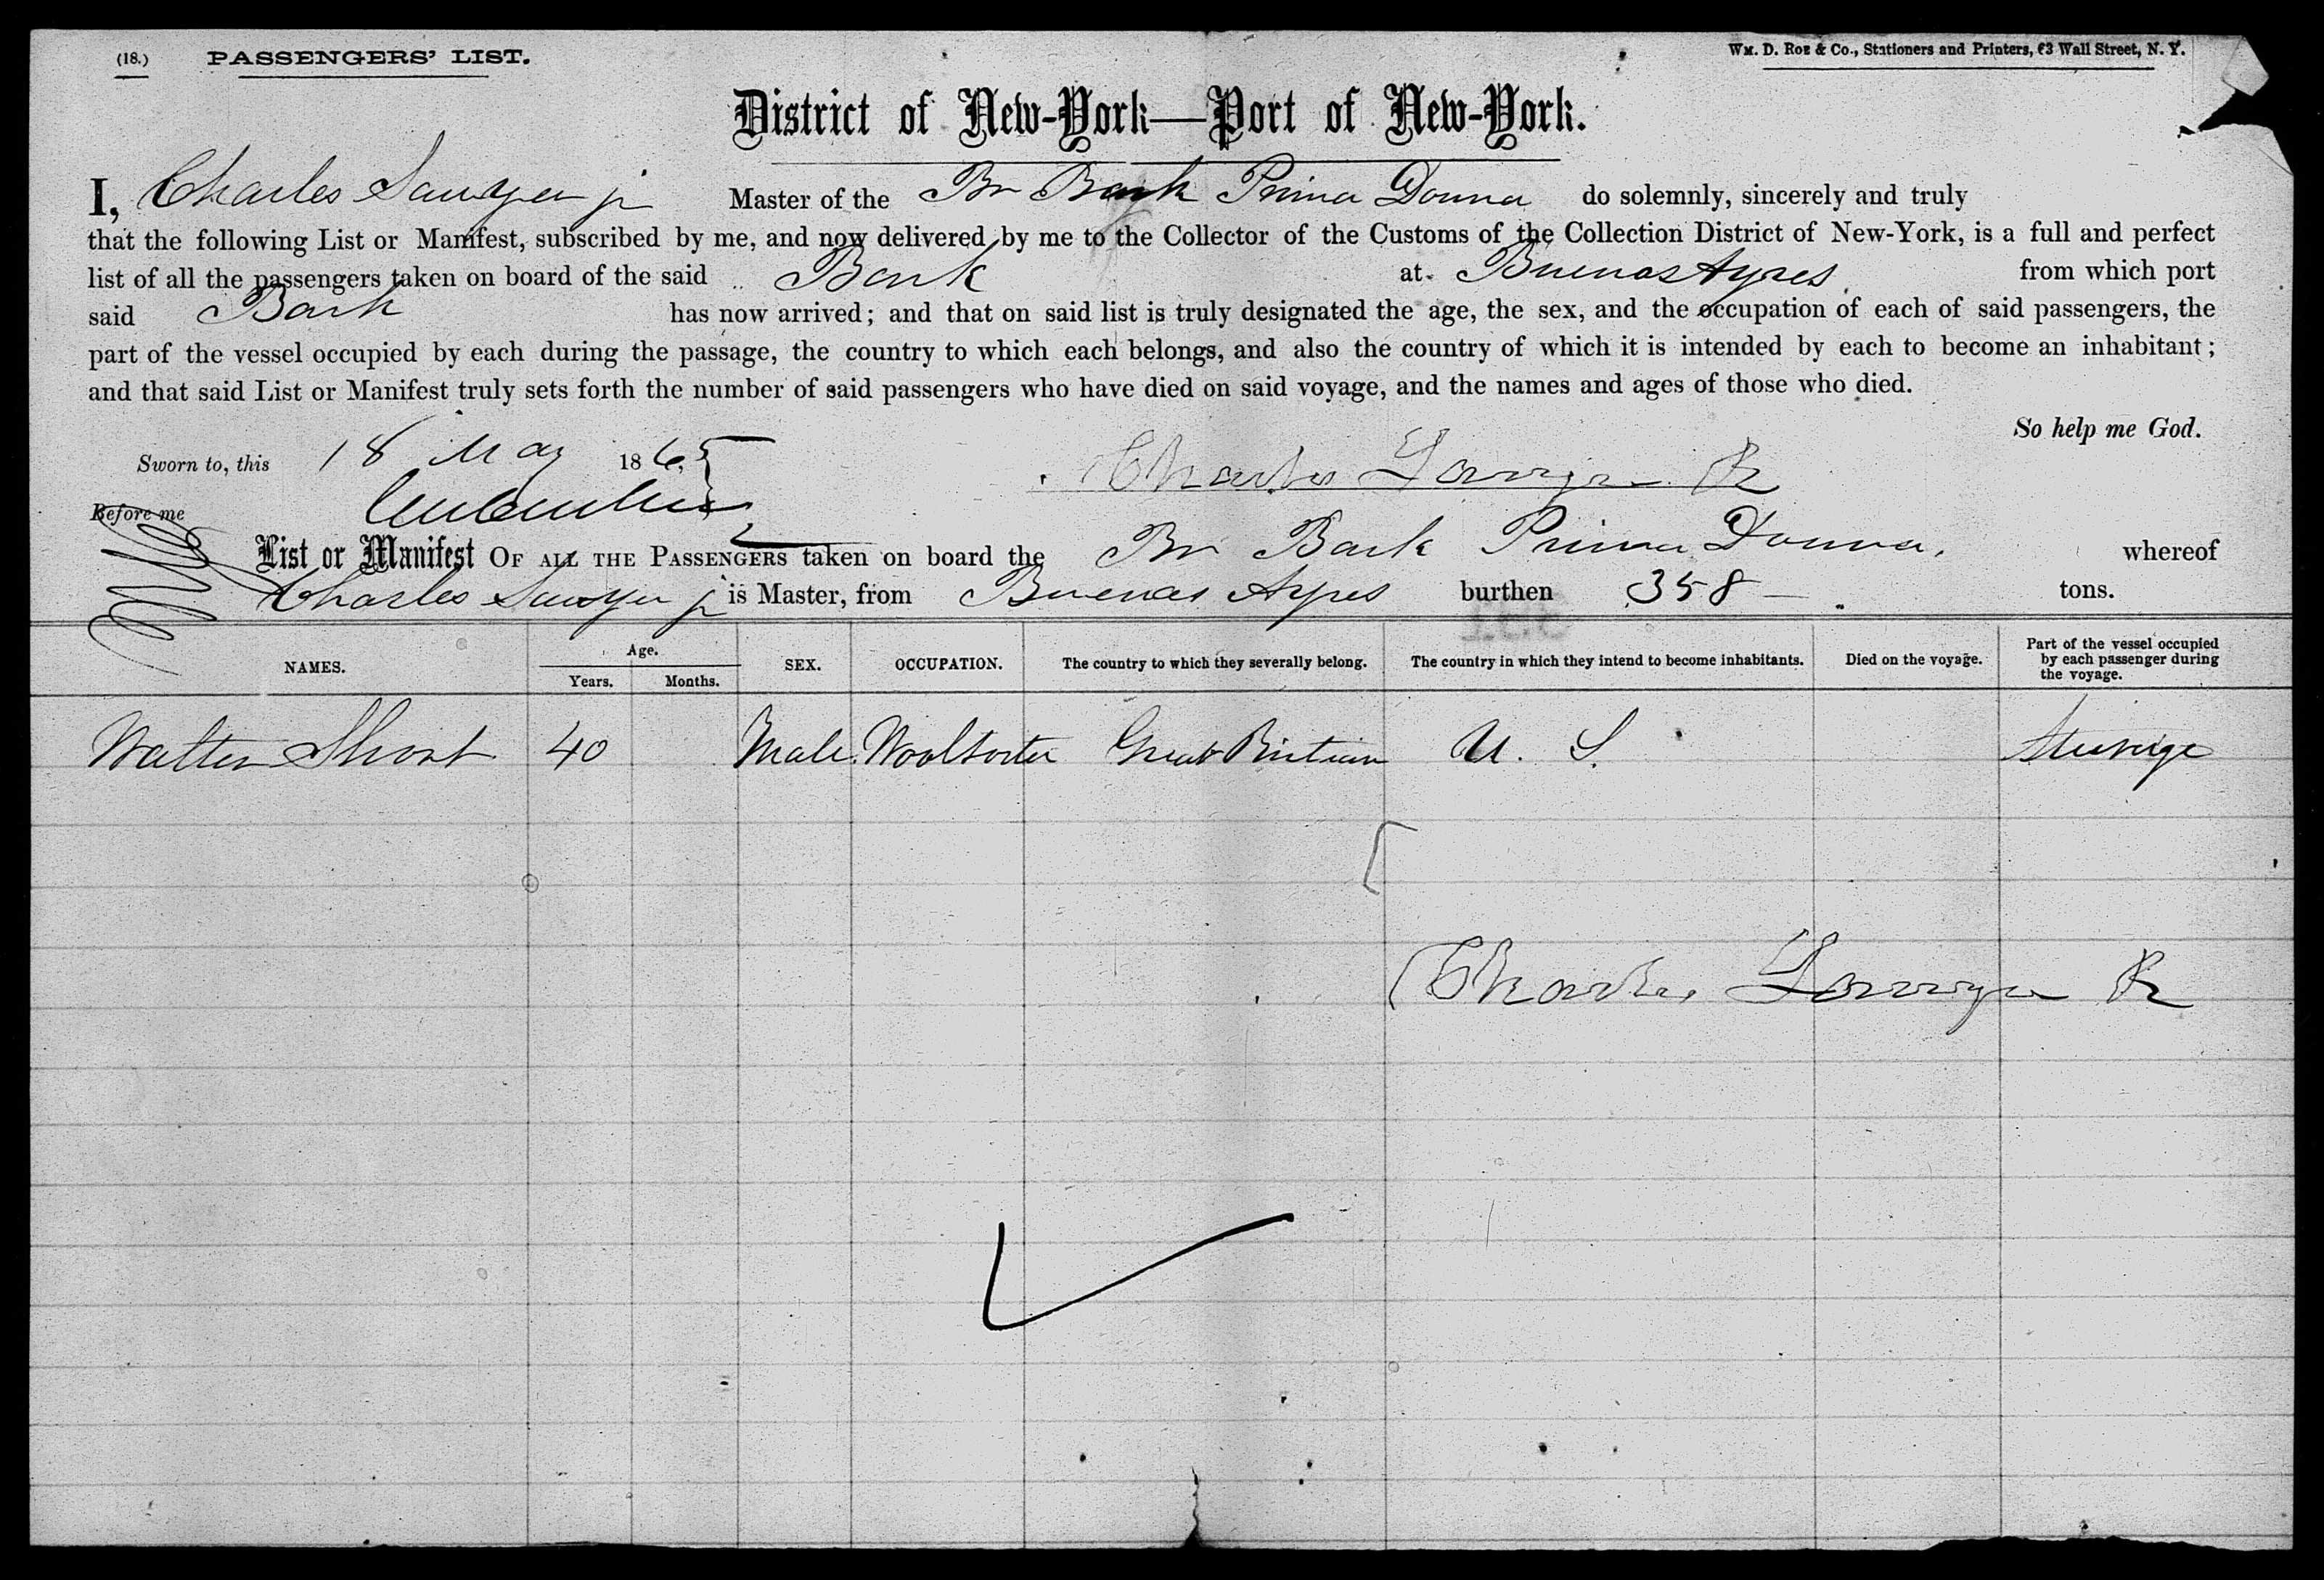 (18.) PASSENGERS' LIST. Wm. D. Roe & Co., Stationers and Printers, 63 Wall Street, N. Y.
District of New-York—Port of New-York.
I, Charles Sawyer jr Master of the Br Bark Prima Donna do solemnly, sincerely and truly
that the following List or Manifest, subscribed by me, and now delivered by me to the Collector of the Customs of the Collection District of New-York, is a full and perfect
list of all the passengers taken on board of the said Bark at Buenos Ayres from which port
said Bark has now arrived; and that on said list is truly designated the age, the sex, and the occupation of each of said passengers, the
part of the vessel occupied by each during the passage, the country to which each belongs, and also the country of which it is intended by each to become an inhabitant;
and that said List or Manifest truly sets forth the number of said passengers who have died on said voyage, and the names and ages of those who died.
So help me God.
Sworn to, this 18 May 1865 Charles Sawyer Jr
Before me
List or Manifest OF ALL THE PASSENGERS taken on board the Br Bark Prima Donna, whereof
Charles Sawyer jr is Master, from Buenos Ayres burthen 358 tons.
NAMES. Age. Years. Months. SEX. OCCUPATION. The country to which they severally belong. The country in which they intend to become inhabitants. Died on the voyage. Part of the vessel occupied by each passenger during the voyage.
Walter Short 40 Male Woolsorter Great Britian U. S. Steerige
Charles Sawyer Jr